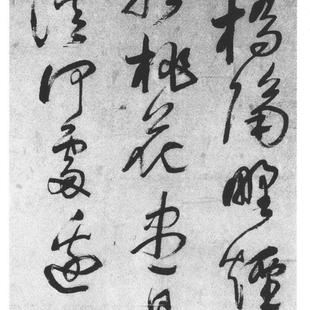 橋隔野煙
桃花盡日
溪何處邊